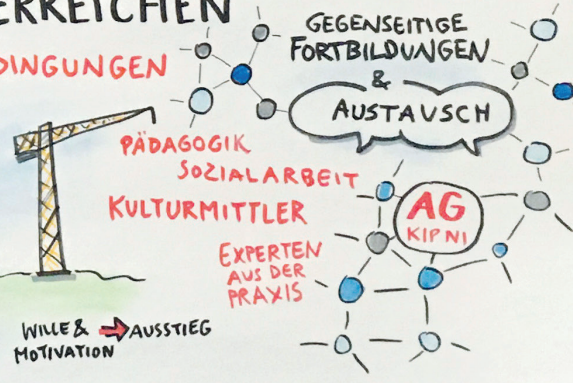 ERREICHEN
DINGUNGEN
GEGENSEITIGE
FORTBILDUNGEN
&
AUSTAUSCH
PÄDAGOGIK
SOZIALARBEIT
KULTURMITTLER
EXPERTEN
AUS DER
PRAXIS
AG
KIP NI
WILLE & AUSSTIEG
MOTIVATION